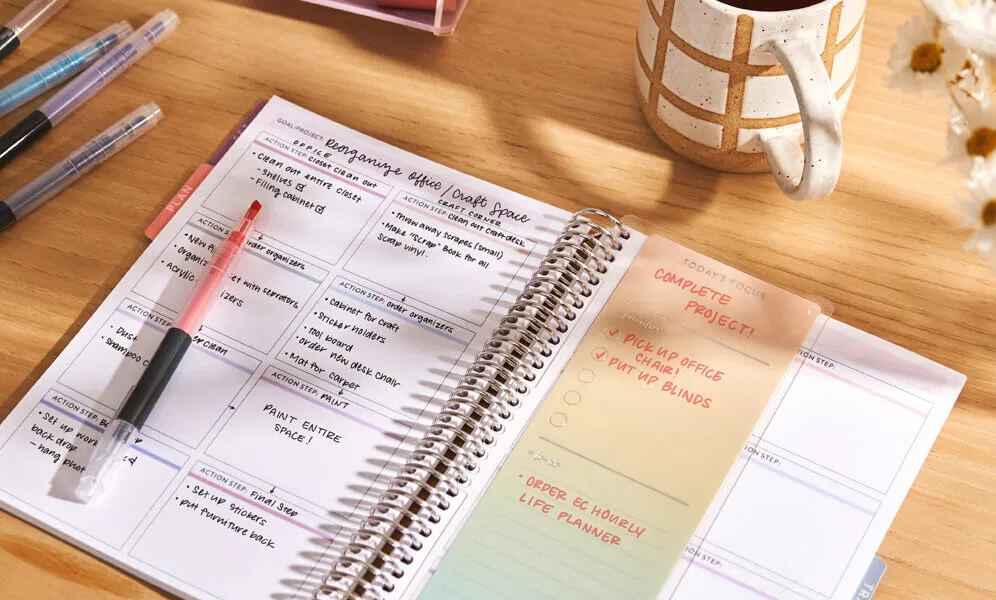 PLAN
GOAL/PROJECT: Reorganize office / Craft Space
OFFICE
ACTION STEP: Closet clean out
• Clean out entire closet
- Shelves ☑
- Filing cabinet ☑
CRAFT CORNER
ACTION STEP: Clean out Craft desk
• Throw away scrapes (small)
• Make "Scrap" Book for all
scrap vinyl.
ACTION order organizers
• New
• Organiz et with serrators,
• Acrylic izers
ACTION STEP: order organizers
• cabinet for craft
• Sticker holders
• Tool board
• order new desk chair
• Mat for carper
ACTION STEP: clean
• Dust
• Shampoo
ACTION STEP: PAINT
PAINT ENTIRE
SPACE!
ACTION STEP:
• Set up work
back drop
- hang
ACTION STEP: Final Step
• Set up stickers
• put furniture back
TODAY'S FOCUS
COMPLETE
PROJECT!
priorities
PICK UP OFFICE
CHAIR!
PUT UP BLINDS
to-do
• ORDER EC HOURLY
LIFE PLANNER
ACTION STEP:
STEP:
ION STEP: